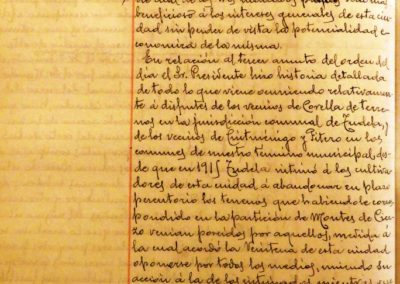 beneficioso á los intereses generales de esta ciu
dad sin perder de vista la potencialidad e
conomica de la misma.
En relación al tercer asunto del orden del
dia el Sr. Presidente hizo historia detallada
de todo lo que viene ocurriendo relativamen
te á disfrutes de los vecinos de Corella de terre
nos en la jurisdicción comunal de Tudela, y
de los vecinos de Cintruénigo y Fitero en los
comunes de nuestro termino municipal, des
de que en 1915 Tudela intimó á los cultiva
dores de esta ciudad á abandonar en plazo
perentorio los terrenos que habiendole corres
pondido en la partición de Montes de Cier
zo venian poseidos por aquellos, medida á
la cual acordó la Veintena de esta ciudad
oponerse por todos los medios, uniendo su
acción á la de los intimados mientras que